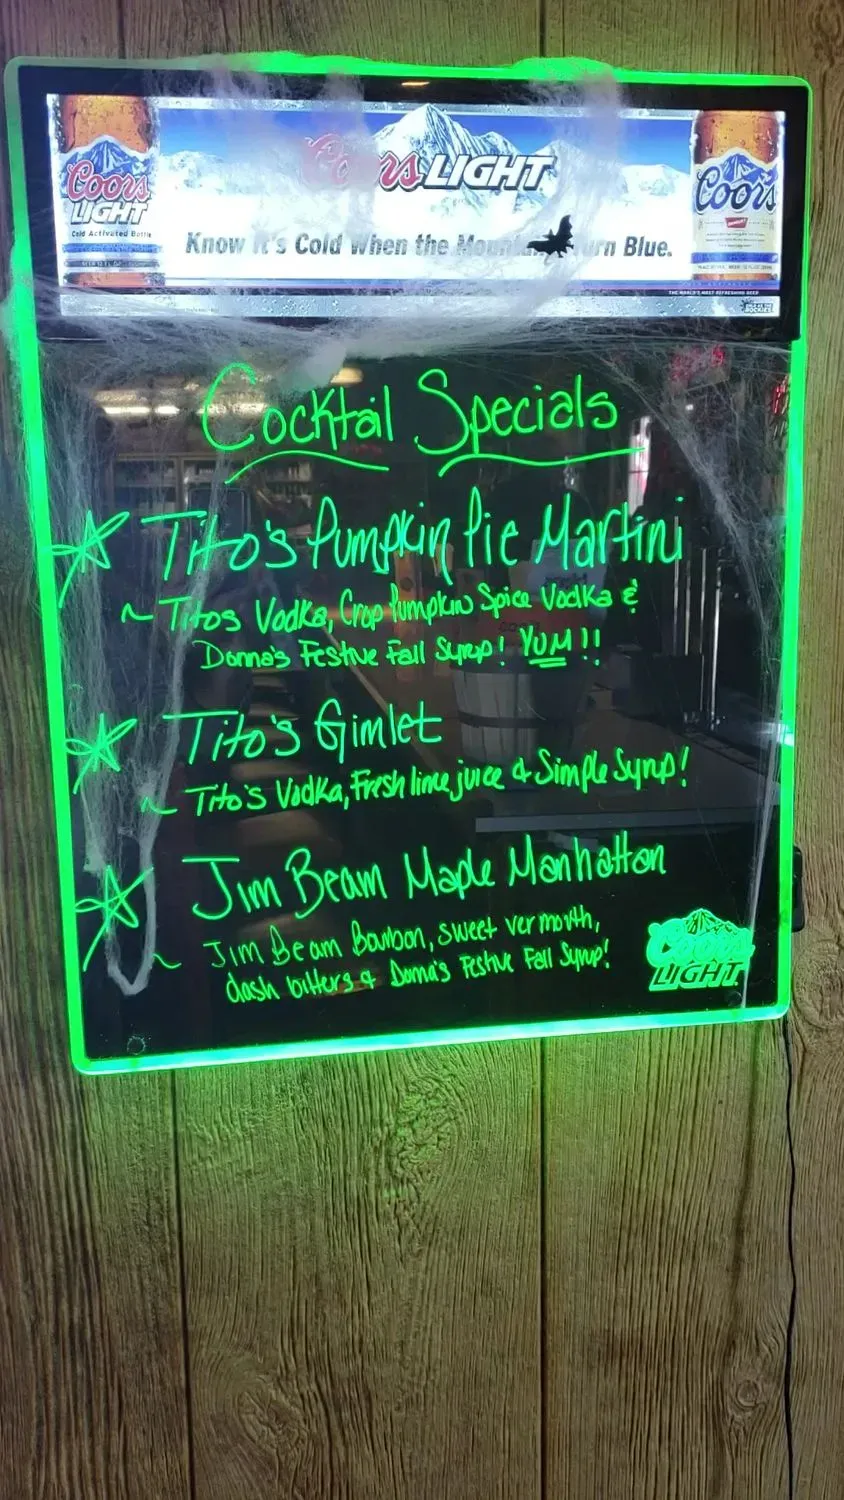 Coors LIGHT
Know It's Cold When the Mountains Turn Blue.
Coors
LIGHT
Cold Activated Bottle
Coors
THE WORLD'S MOST REFRESHING BEER
Cocktail Specials
Tito's Pumpkin Pie Martini
~ Titos Vodka, Crop Pumpkin Spice Vodka &
Donna's Festive Fall Syrup! YUM!!
Tito's Gimlet
~ Tito's Vodka, Fresh lime juice & Simple Syrup!
Jim Beam Maple Manhattan
~ Jim Beam Bourbon, sweet vermouth,
dash bitters & Donna's Festive Fall Syrup!
Coors
LIGHT